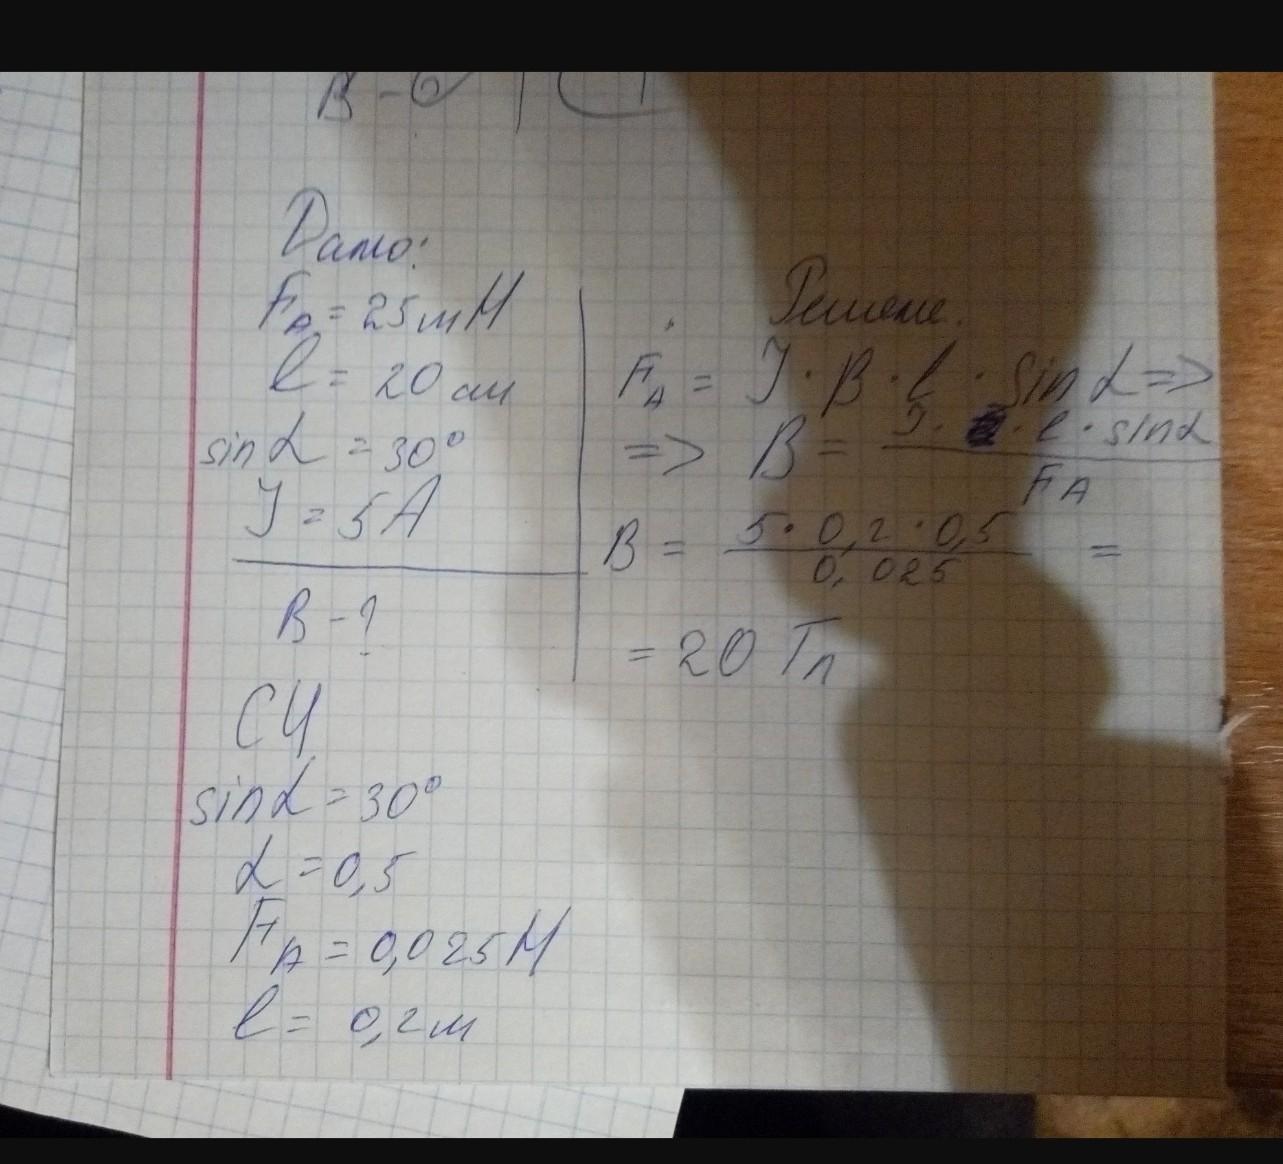 В -
Дано:
F_A = 25 мН
l = 20 см
sin α = 30°
I = 5 А
В - ?
СИ
sin α = 30°
α = 0,5
F_A = 0,025 Н
l = 0,2 м
Решение.
F_A = I · B · l · sin α =>
=> B = I · l · sin α / F_A
B = 5 · 0,2 · 0,5 / 0,025 =
= 20 Тл